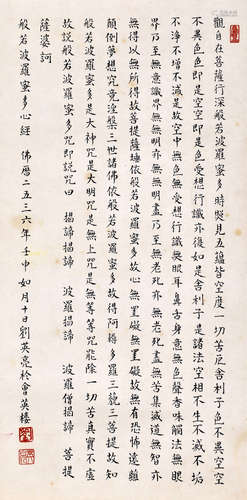 觀自在菩薩行深般若波羅蜜多時照見五蘊皆空度一切苦厄舍利子色不異空空
不異色色即是空空即是色受想行識亦復如是舍利子是諸法空相不生不滅不垢
不淨不增不減是故空中無色無受想行識無眼耳鼻舌身意無色聲香味觸法無眼
界乃至無意識界無無明亦無無明盡乃至無老死亦無老死盡無苦集滅道無智亦
無得以無所得故菩提薩埵依般若波羅蜜多故心無罣礙無罣礙故無有恐怖遠離
顛倒夢想究竟涅槃三世諸佛依般若波羅蜜多故得阿耨多羅三藐三菩提故知
般若波羅蜜多是大神咒是大明咒是無上咒是無等等咒能除一切苦真實不虛
故說般若波羅蜜多咒即說咒曰 揭諦揭諦 波羅揭諦 波羅僧揭諦 菩提
薩婆訶
般若波羅蜜多心經 佛曆二五三六年壬申如月十日劉英亮於會英樓